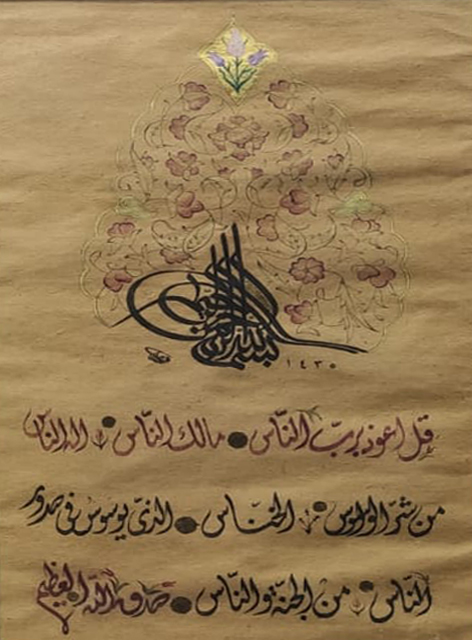 بسم الله الرحمن الرحيم
١٤٣٥
قل اعوذ بربّ النّاس مالك النّاس اله النّاس
من شرّ الوسواس الخنّاس الذي يوسوس في صدور
النّاس من الجنّة والنّاس صدق الله العظيم